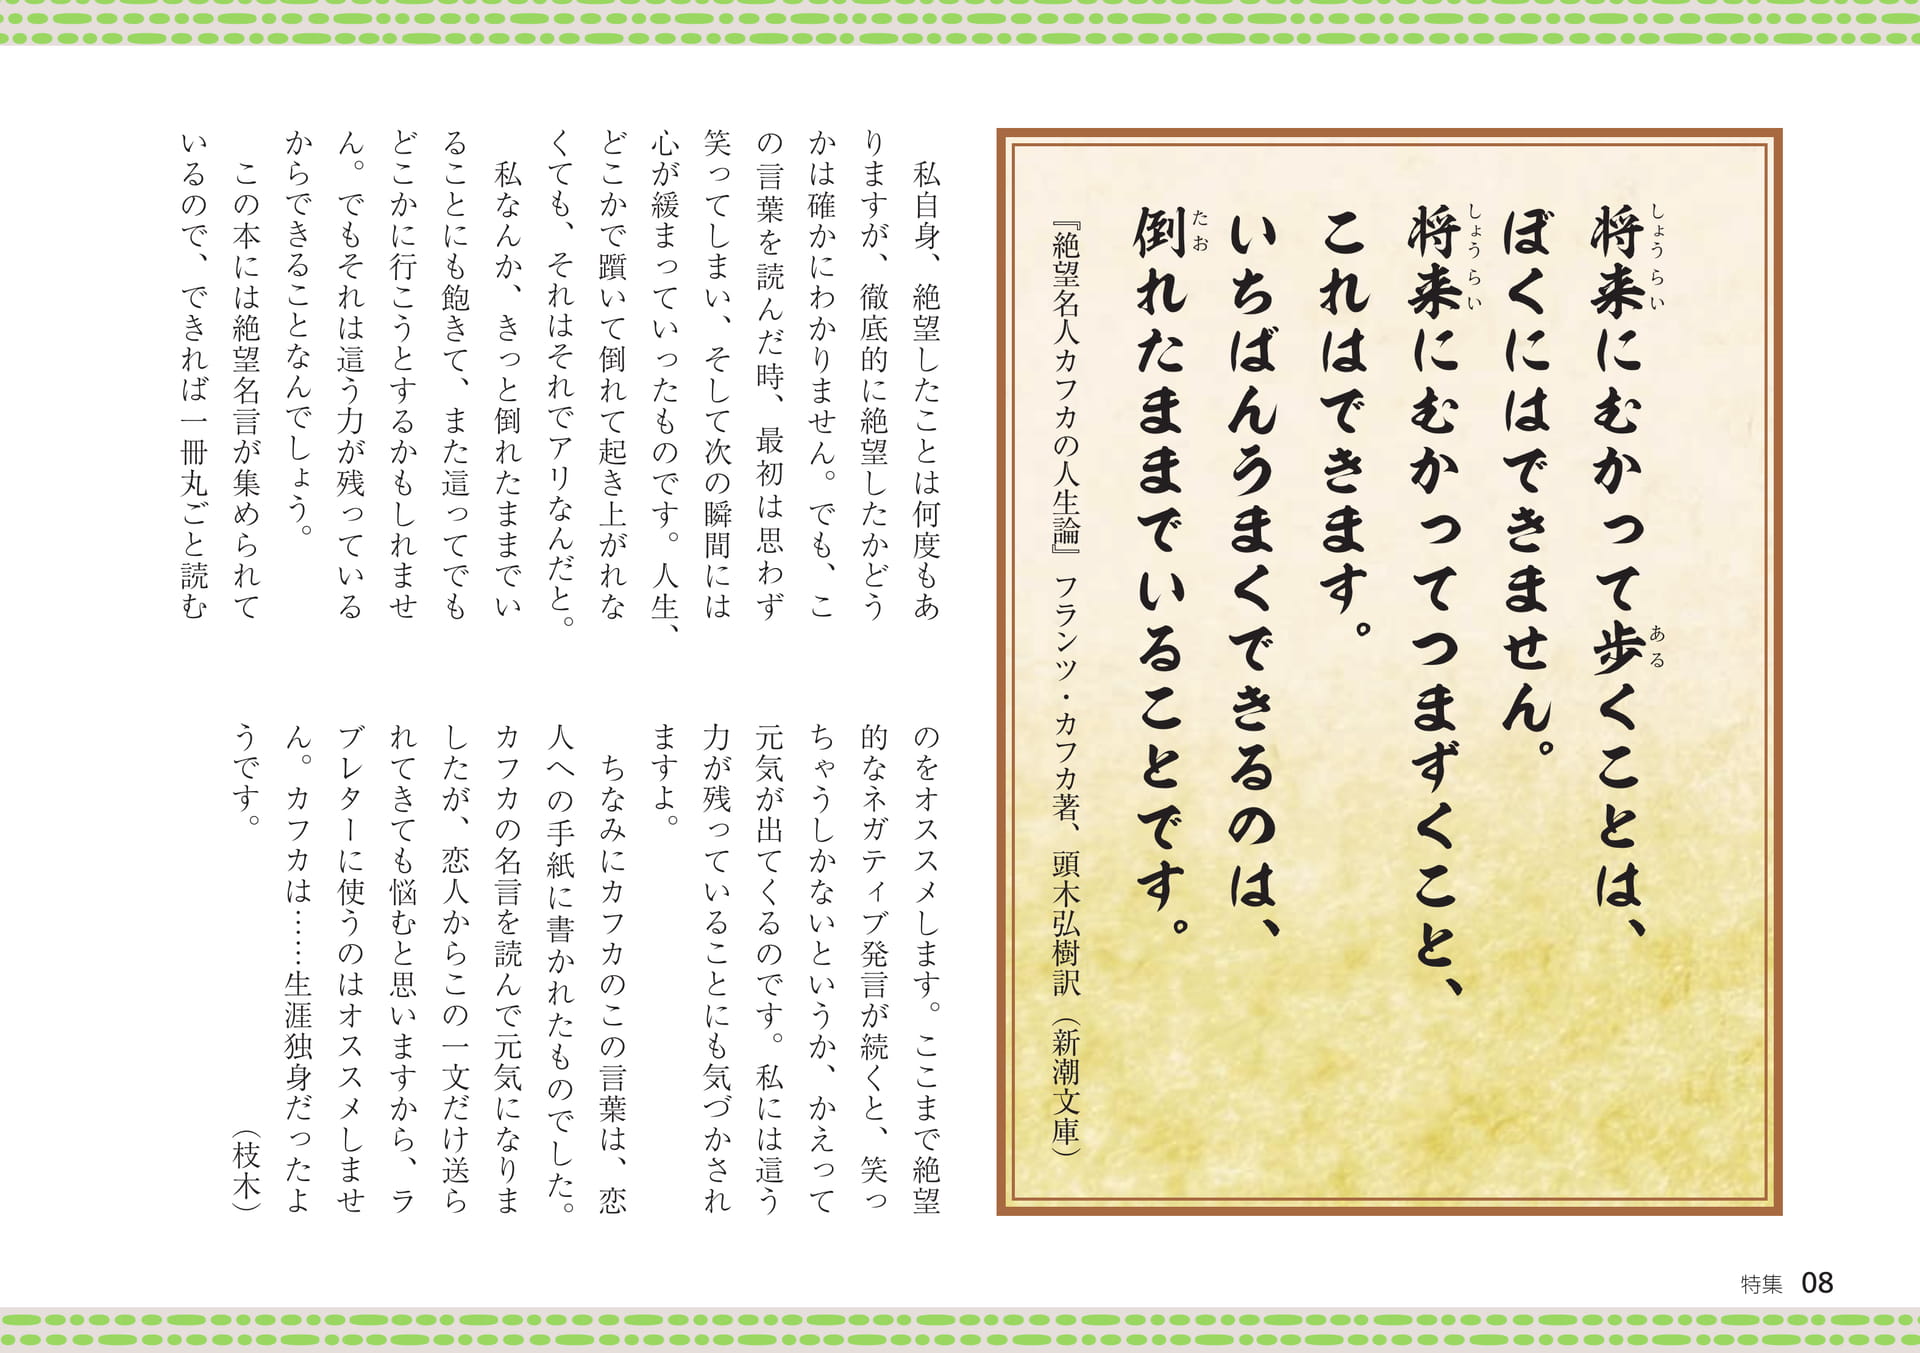 将来にむかって歩くことは、
ぼくにはできません。
将来にむかってつまずくこと、
これはできます。
いちばんうまくできるのは、
倒れたままでいることです。
しょうらい
ある
しょうらい
たお
『絶望名人カフカの人生論』フランツ・カフカ著、頭木弘樹訳（新潮文庫）
私自身、絶望したことは何度もあ
りますが、徹底的に絶望したかどう
かは確かにわかりません。でも、こ
の言葉を読んだ時、最初は思わず
笑ってしまい、そして次の瞬間には
心が緩まっていったものです。人生、
どこかで躓いて倒れて起き上がれな
くても、それはそれでアリなんだと。
私なんか、きっと倒れたままでい
ることにも飽きて、また這ってでも
どこかに行こうとするかもしれませ
ん。でもそれは這う力が残っている
からできることなんでしょう。
この本には絶望名言が集められて
いるので、できれば一冊丸ごと読む
のをオススメします。ここまで絶望
的なネガティブ発言が続くと、笑っ
ちゃうしかないというか、かえって
元気が出てくるのです。私には這う
力が残っていることにも気づかされ
ますよ。
ちなみにカフカのこの言葉は、恋
人への手紙に書かれたものでした。
カフカの名言を読んで元気になりま
したが、恋人からこの一文だけ送ら
れてきても悩むと思いますから、ラ
ブレターに使うのはオススメしませ
ん。カフカは……生涯独身だったよ
うです。
（枝木）
特集 08